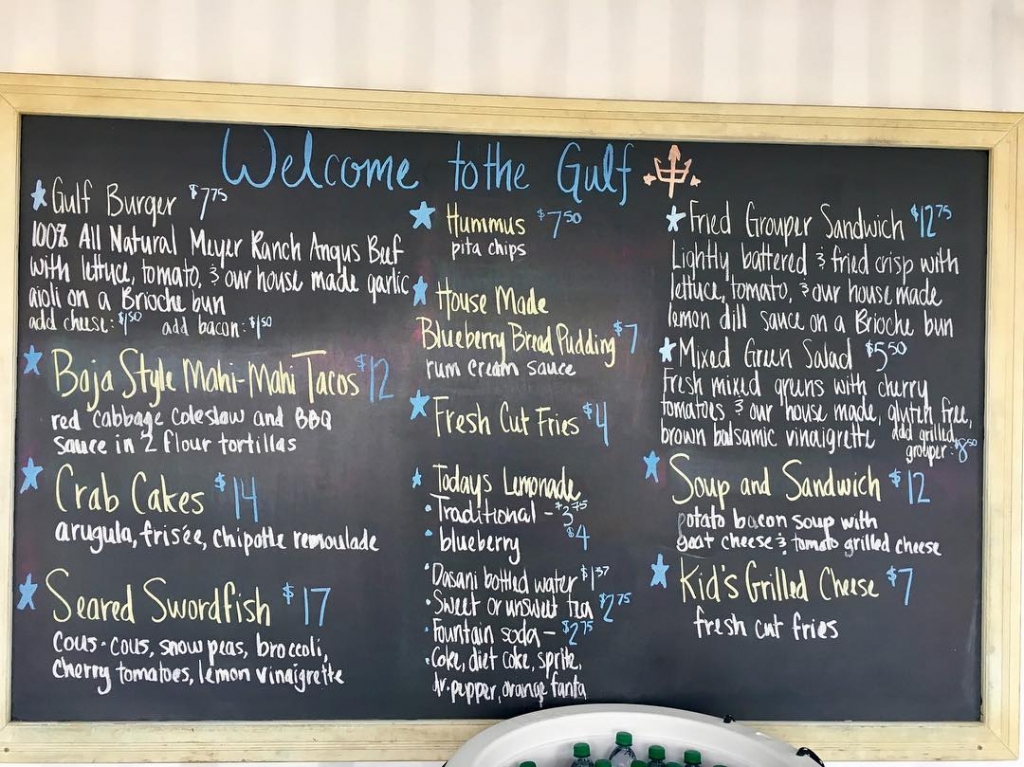 Welcome to the Gulf
Gulf Burger $7.75
100% All Natural Meyer Ranch Angus Beef
with lettuce, tomato, & our house made garlic
aioli on a Brioche bun
add cheese: $1.50 add bacon: $1.50
Baja Style Mahi-Mahi Tacos $12
red cabbage coleslaw and BBQ
sauce in 2 flour tortillas
Crab Cakes $14
arugula, frisée, chipotle remoulade
Seared Swordfish $17
Cous-cous, snow peas, broccoli,
Cherry tomatoes, lemon vinaigrette
Hummus $7.50
pita chips
House Made
Blueberry Bread Pudding $7
rum cream sauce
Fresh Cut Fries $4
Todays Lemonade
• Traditional - $3.75
• blueberry $4
• Dasani bottled water $1.37
• Sweet or unsweet tea $2.75
• Fountain soda - $2.75
• Coke, diet coke, sprite,
dr. pepper, orange fanta
Fried Grouper Sandwich $12.75
Lightly battered & fried crisp with
lettuce, tomato, & our house made
lemon dill sauce on a Brioche bun
Mixed Green Salad $5.50
Fresh mixed greens with cherry
tomatoes & our house made, gluten free,
brown balsamic vinaigrette add grilled
grouper: $8.50
Soup and Sandwich $12
potato bacon soup with
goat cheese & tomato grilled cheese
Kid's Grilled Cheese $7
fresh cut fries